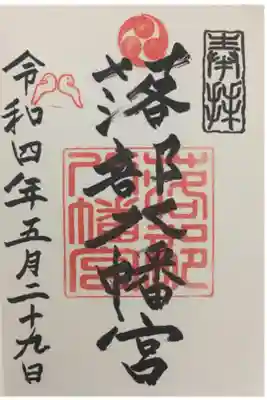 奉拝
落部八幡宮
落部八幡宮
令和四年五月二十九日